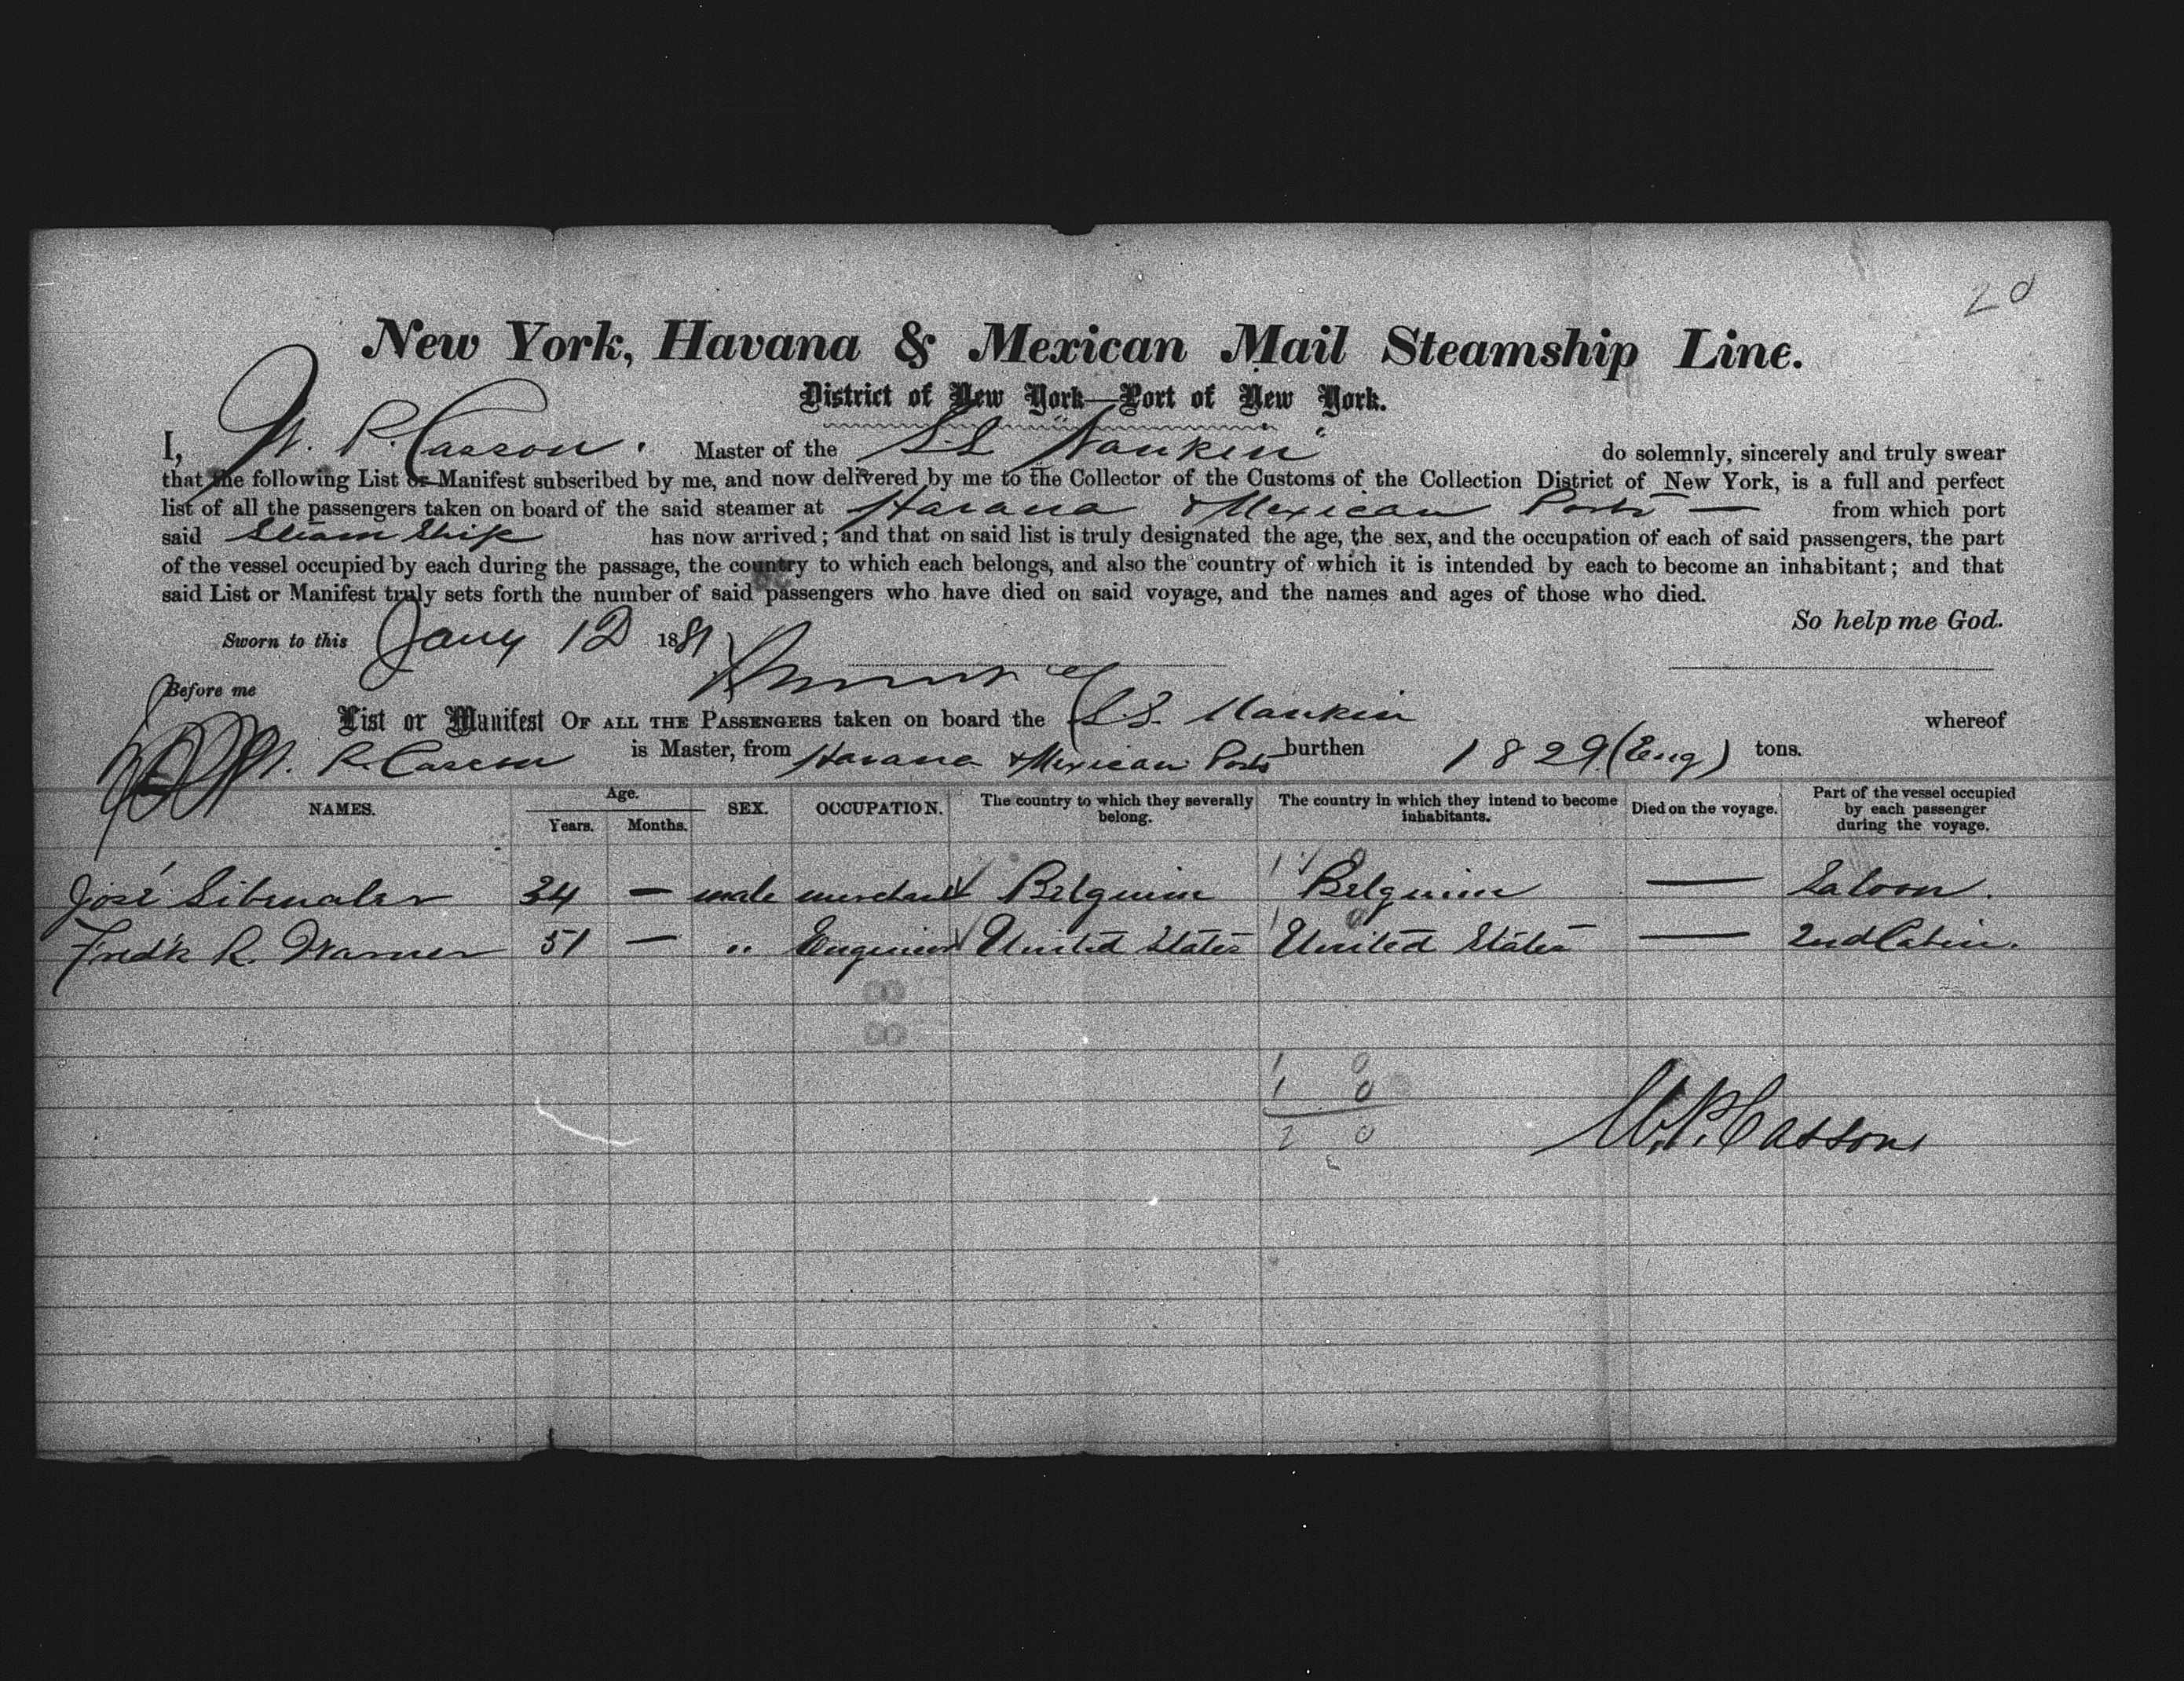 20
New York, Havana & Mexican Mail Steamship Line.
District of New York—Port of New York.
I, W. P. Casson. Master of the S.S. Nankin" do solemnly, sincerely and truly swear
that the following List or Manifest subscribed by me, and now delivered by me to the Collector of the Customs of the Collection District of New York, is a full and perfect
list of all the passengers taken on board of the said steamer at Havana & Mexican Ports — from which port
said Steam Ship has now arrived; and that on said list is truly designated the age, the sex, and the occupation of each of said passengers, the part
of the vessel occupied by each during the passage, the country to which each belongs, and also the country of which it is intended by each to become an inhabitant; and that
said List or Manifest truly sets forth the number of said passengers who have died on said voyage, and the names and ages of those who died.
So help me God.
Sworn to this Jany 12 1881
Before me
List or Manifest OF ALL THE PASSENGERS taken on board the S.S. Nankin whereof
W. P. Casson is Master, from Havana & Mexican Ports burthen 1829 (Eng) tons.
NAMES. Age. Years. Months. SEX. OCCUPATION. The country to which they severally belong. The country in which they intend to become inhabitants. Died on the voyage. Part of the vessel occupied by each passenger during the voyage.
José 34 — male merchant Belguim Belguim — Saloon.
Fredk R. Warner 51 — " Engineer United States United States — 2nd Cabin.
1 0
1 0
2 0
W.P. Casson